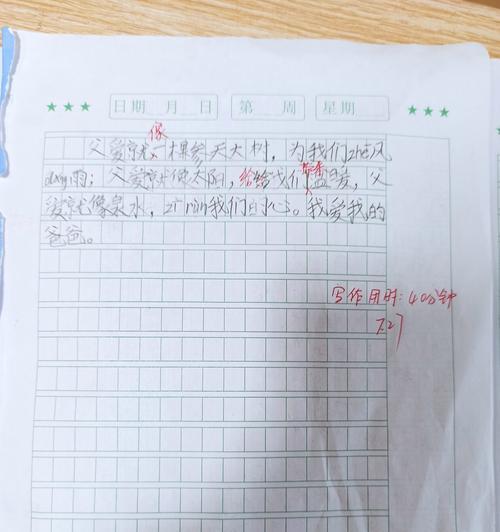 ★★★ 日期 月 日 第 周 星期 ★★★
像
父爱就一棵参天大树，为我们zhē风
dǎng雨；父爱就像太阳，给给我们温暖，父
爱就像泉水，zī rùn我们的心。我爱我的
爸爸。
写作用时：40分钟
7.27